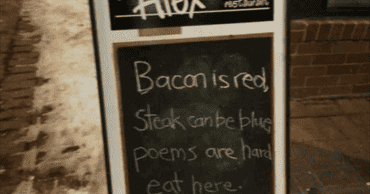 Alex
restaurant
Bacon is red,
Steak can be blue,
poems are hard
eat here.